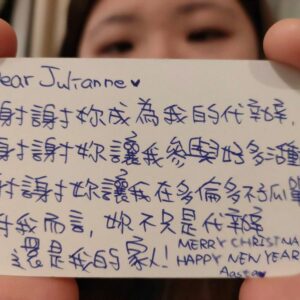 Dear Julianne♥
謝謝妳成為我的代班,
謝謝妳讓我參與好多活
謝謝妳讓我在多倫多不孤單
對我而言,妳不只是代班
還是我的家人! MERRY CHRISTMA
HAPPY NEW YEAR
Aasta